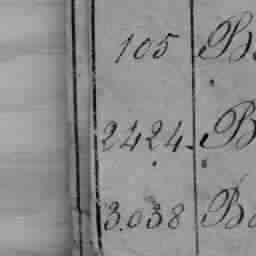 105 B
2424. B
3.038 Bo